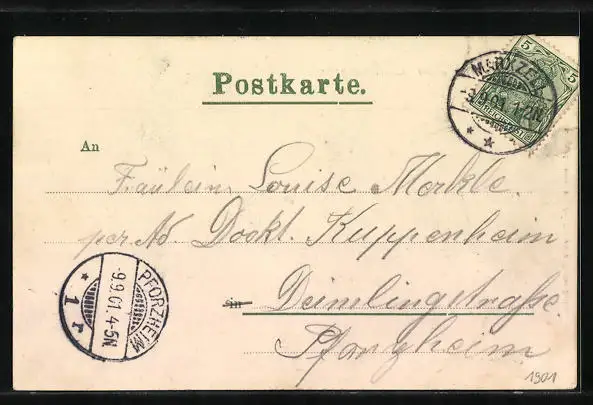 Postkarte.
5 5
MARXZELL
-9.9.01. 1-2N
* *
REICHSPOST
An
Fräulein Louise Merkle.
per. Ad. Dockt. Kuppenheim
in Deimlingstraße.
Pforzheim
PFORZHEIM
-9.9.01. 4-5N
* 1 r
1901